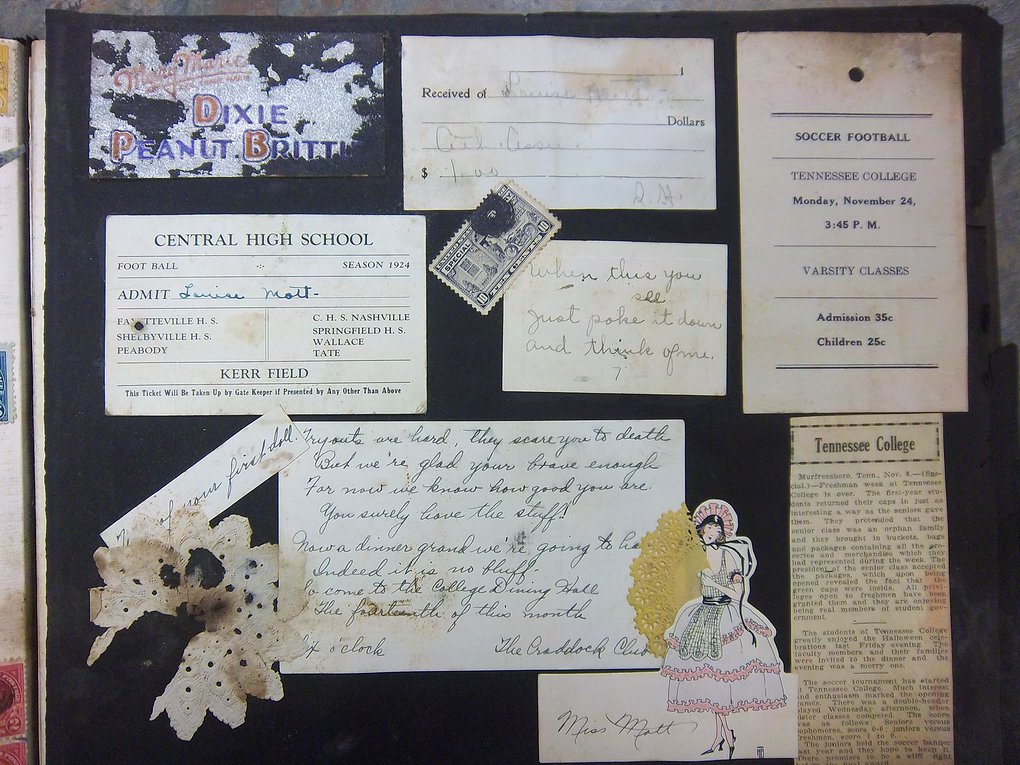 Mary Maxie
DIXIE
PEANUT BRITTL
$
Received of Louise Mott
Dollars
$ 1.00
SOCCER FOOTBALL
TENNESSEE COLLEGE
Monday, November 24,
3:45 P. M.
VARSITY CLASSES
Admission 35c
Children 25c
CENTRAL HIGH SCHOOL
FOOT BALL SEASON 1924
ADMIT Louise Mott-
FAYETTEVILLE H. S.
SHELBYVILLE H. S.
PEABODY
C. H. S. NASHVILLE
SPRINGFIELD H. S.
WALLACE
TATE
KERR FIELD
This Ticket Will Be Taken Up by Gate Keeper if Presented by Any Other Than Above
SPECIAL
10 10
When this you
see
Just poke it down
and think of me.
?
of your first doll.
Tryouts are hard, they scare you to death
But we're glad your brave enough
For now we know how good you are.
You surely have the stuff!
Now a dinner grand we're going to ha
Indeed it is no bluff
So come to the College Dining Hall
The fourteenth of this month
o'clock The Craddock Club
Miss Mott
Tennessee College
Murfreesboro, Tenn., Nov. 8.—(Spe-
cial.)—Freshman week at Tennessee
College is over. The first-year stu-
dents returned their caps in just as
interesting a way as the seniors gave
them. They pretended that the
senior class was an orphan family
and they brought in buckets, bags
and packages containing all the gro-
ceries and merchandise which they
had represented during the week. The
president of the senior class accepted
the packages, which upon being
opened revealed the fact that the
green caps were inside. All privi-
leges open to freshmen have been
granted them and they are enjoying
being real members of student gov-
ernment.
The students of Tennessee College
greatly enjoyed the Halloween cele-
brations last Friday evening. The
faculty members and their families
were invited to the dinner and the
evening was a merry one.
The soccer tournament has started
at Tennessee College. Much interest
and enthusiasm marked the opening
games. There was a double-header
played Wednesday afternoon, when
sister classes competed. The score
was as follows: Seniors versus
sophomores, score 6-0; juniors versus
freshmen, score 1 to 0.
The juniors held the soccer banner
last year and they hope to keep it.
There promises to be a stiff fight